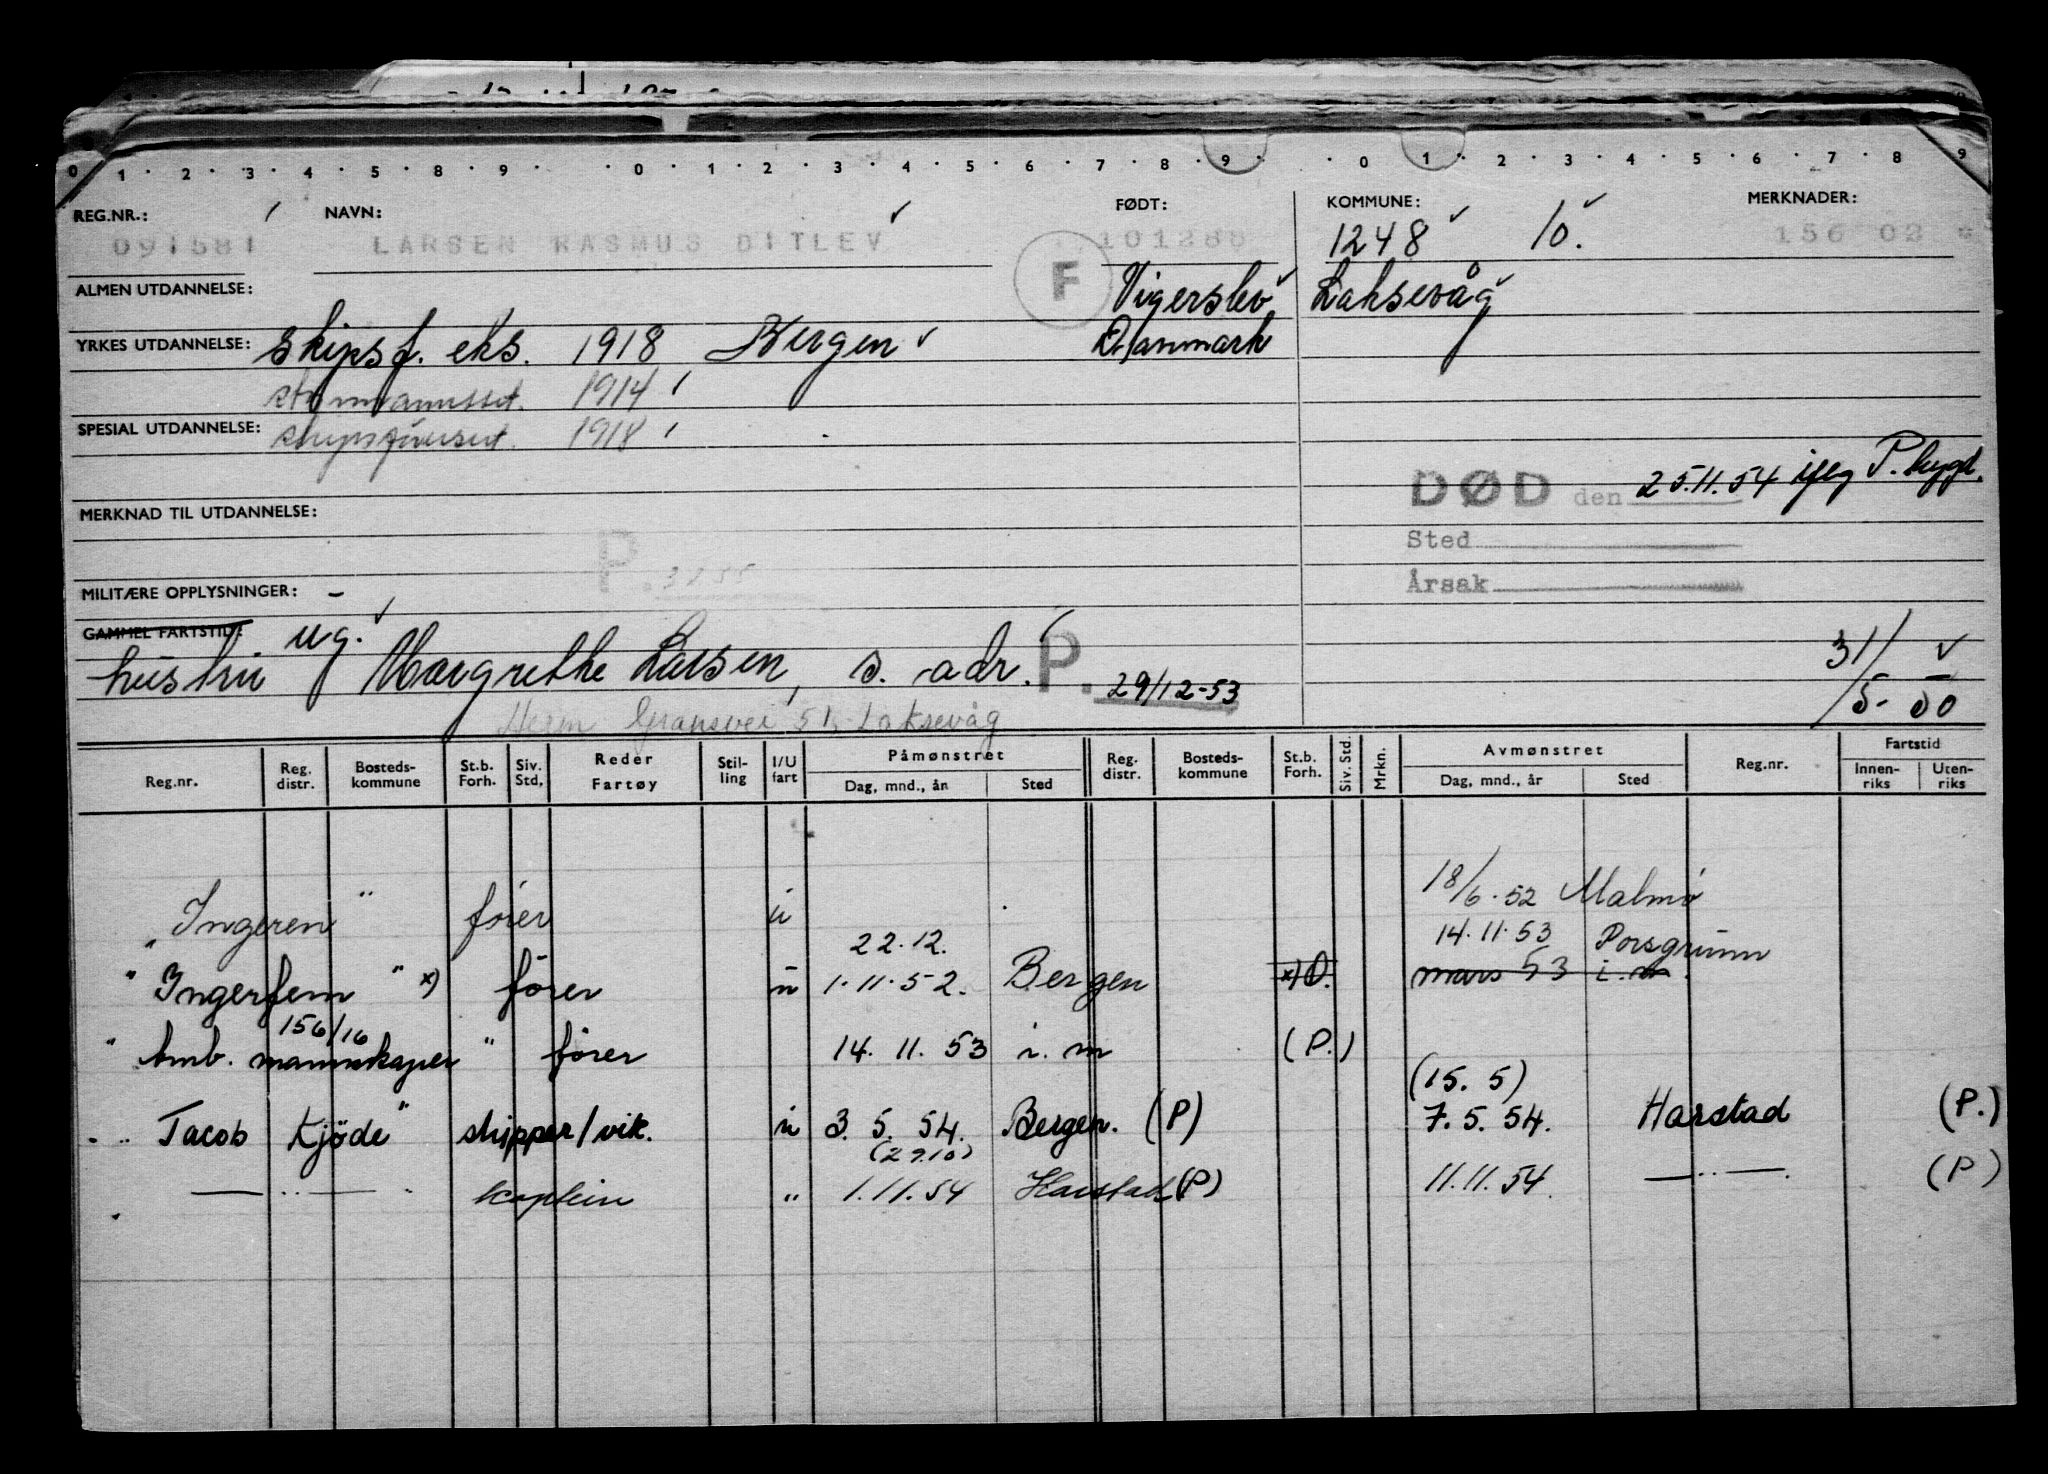 0 · 1 · 2 · 3 · 4 · 5 · 8 · 9 · · 0 · 1 · 2 · 3 · 4 · 5 · 6 · 7 · 8 · 9 · · 0 · 1 · 2 · 3 · 4 · 5 · 6 · 7 · 8 · 9
REG.NR.: NAVN: FØDT: KOMMUNE: MERKNADER:
091581 LARSEN RASMUS DITLEV 1012 1248 10. 156 02
F
ALMEN UTDANNELSE: Vigerslev Laksevåg
YRKES UTDANNELSE: Skipsf. eks. 1918 Bergen Danmark
1914
SPESIAL UTDANNELSE: 1918
DØD den 25.11.54 P.
MERKNAD TIL UTDANNELSE:
Sted
P.
MILITÆRE OPPLYSNINGER: – Årsak
GAMMEL FARTSTID: ug.
hustru Margrethe Larsen, s. adr. P. 29/12-53 31/5-50
Herm Gransvei 51, Laksevåg
Reg.nr. Reg. distr. Bosteds-kommune St.b. Forh. Siv. Std. Reder Fartøy Stil-ling I/U fart Påmønstret Dag, mnd., ån Sted Reg. distr. Bosteds-kommune St.b. Forh. Siv. Std. Mrkn. Avmønstret Dag, mnd., år Sted Reg.nr. Fartstid Innen-riks Uten-riks
" Ingeren " fører u 18/6-52 Malmø
22.12. 14.11.53 Porsgrunn
" Ingerfem " x) fører u 1.11.52. Bergen x) O. mars 53 i.m.
156/16
" Amb. mannskaper " fører 14.11.53 i.m (P.)
(15.5)
" Jacob Kjöde " skipper/vik. u 3.5.54. Bergen. (P) 7.5.54. Harstad (P.)
(29.10)
— " — " kaptein " 1.11.54 Harstad (P) 11.11.54. — " — (P)